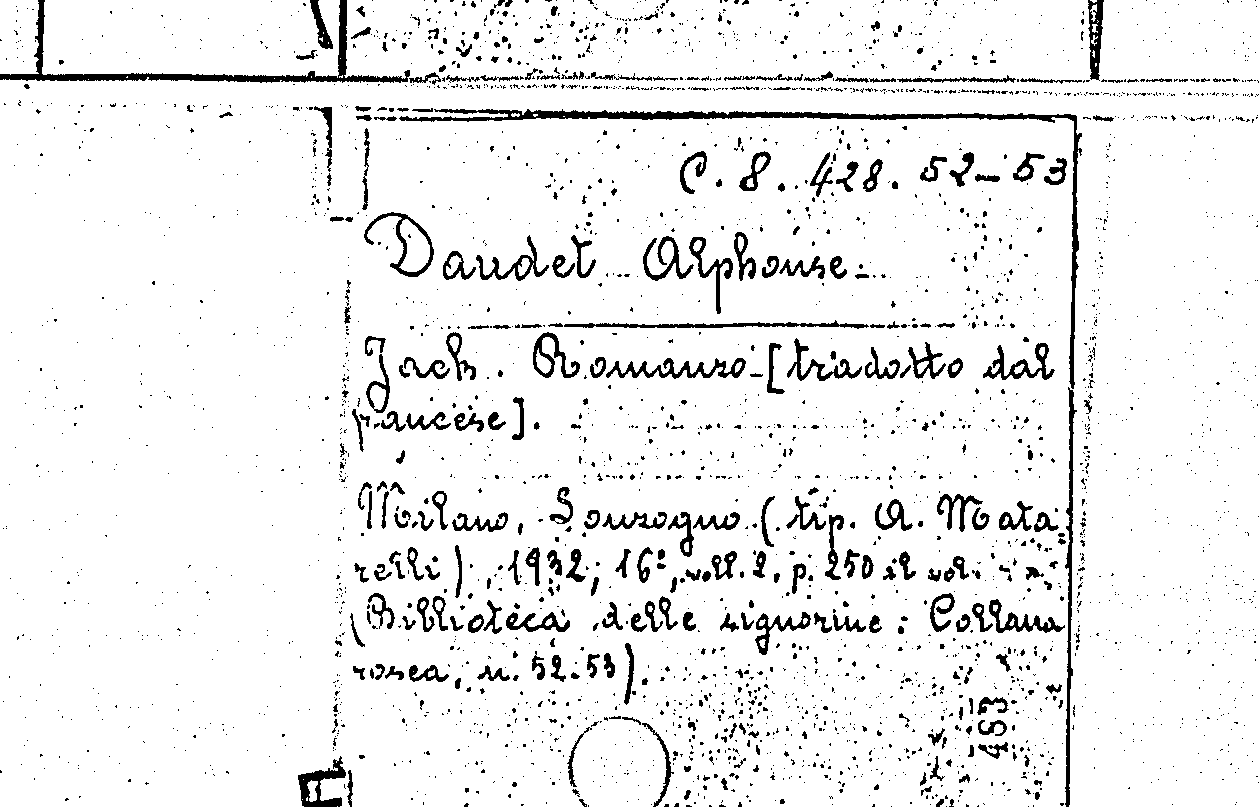 C. 8. 428. 52-53
Daudet Alphonse.
Jack. Romanzo [tradotto dal
francese].
Milano, Sonzogno (tip. A. Mata
relli), 1932; 16°, voll. 2, p. 250 il vol.
(Biblioteca delle signorine: Collana
rosea, n. 52-53).
463